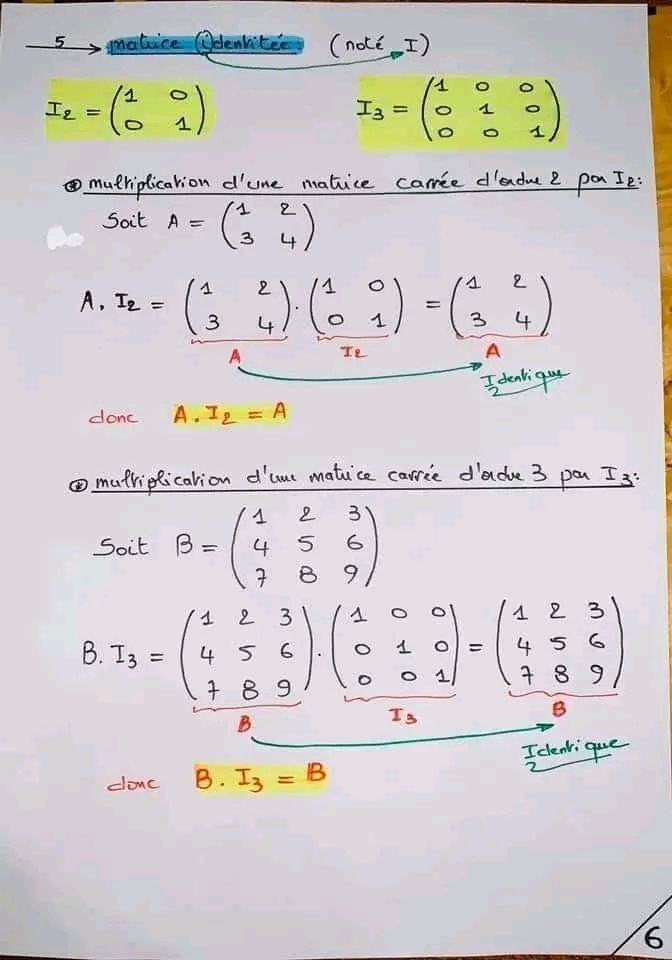 5 → matrice identitée: (noté I)
I2 = (1 0 0 1) I3 = (1 0 0 0 1 0 0 0 1)
* multiplication d'une matrice carrée d'ordre 2 par I2:
Soit A = (1 2
3 4)
A. I2 = (1 2 . (1 0 = (1 2
3 4) 0 1) 3 4)
A I2 A
Identique
donc A. I2 = A
* multiplication d'une matrice carrée d'ordre 3 par I3:
(1 2 3
Soit B = 4 5 6
7 8 9)
(1 2 3 (1 0 0 (1 2 3
B. I3 = 4 5 6 . 0 1 0 = 4 5 6
7 8 9) 0 0 1) 7 8 9)
B I3 B
Identique
donc B. I3 = B
6